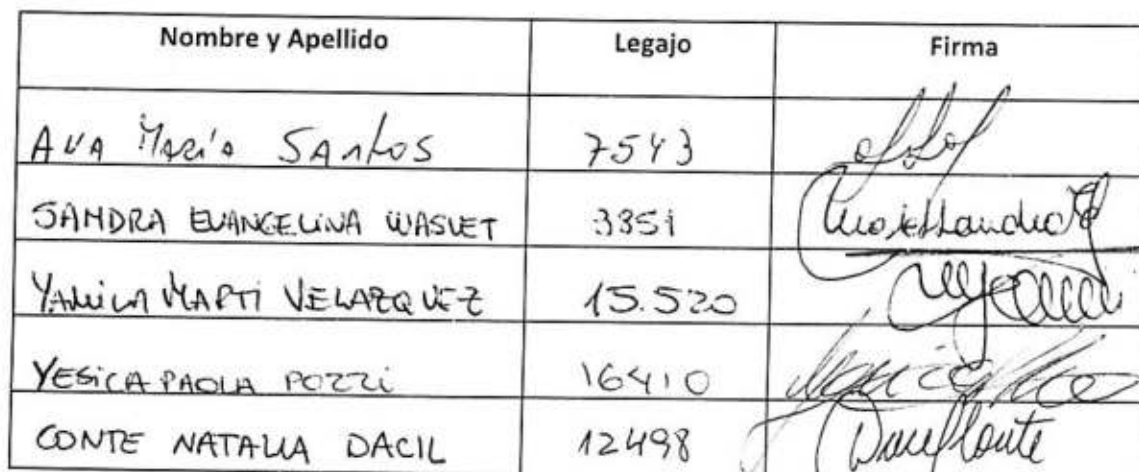 Nombre y Apellido Legajo Firma
AnA María SAntos 7543
SANDRA EVANGELINA WASVET 3351
YAMILA MARTI VELAZQUEZ 15.520
YESICA PAOLA POZZI 16410
CONTE NATALIA DACIL 12498